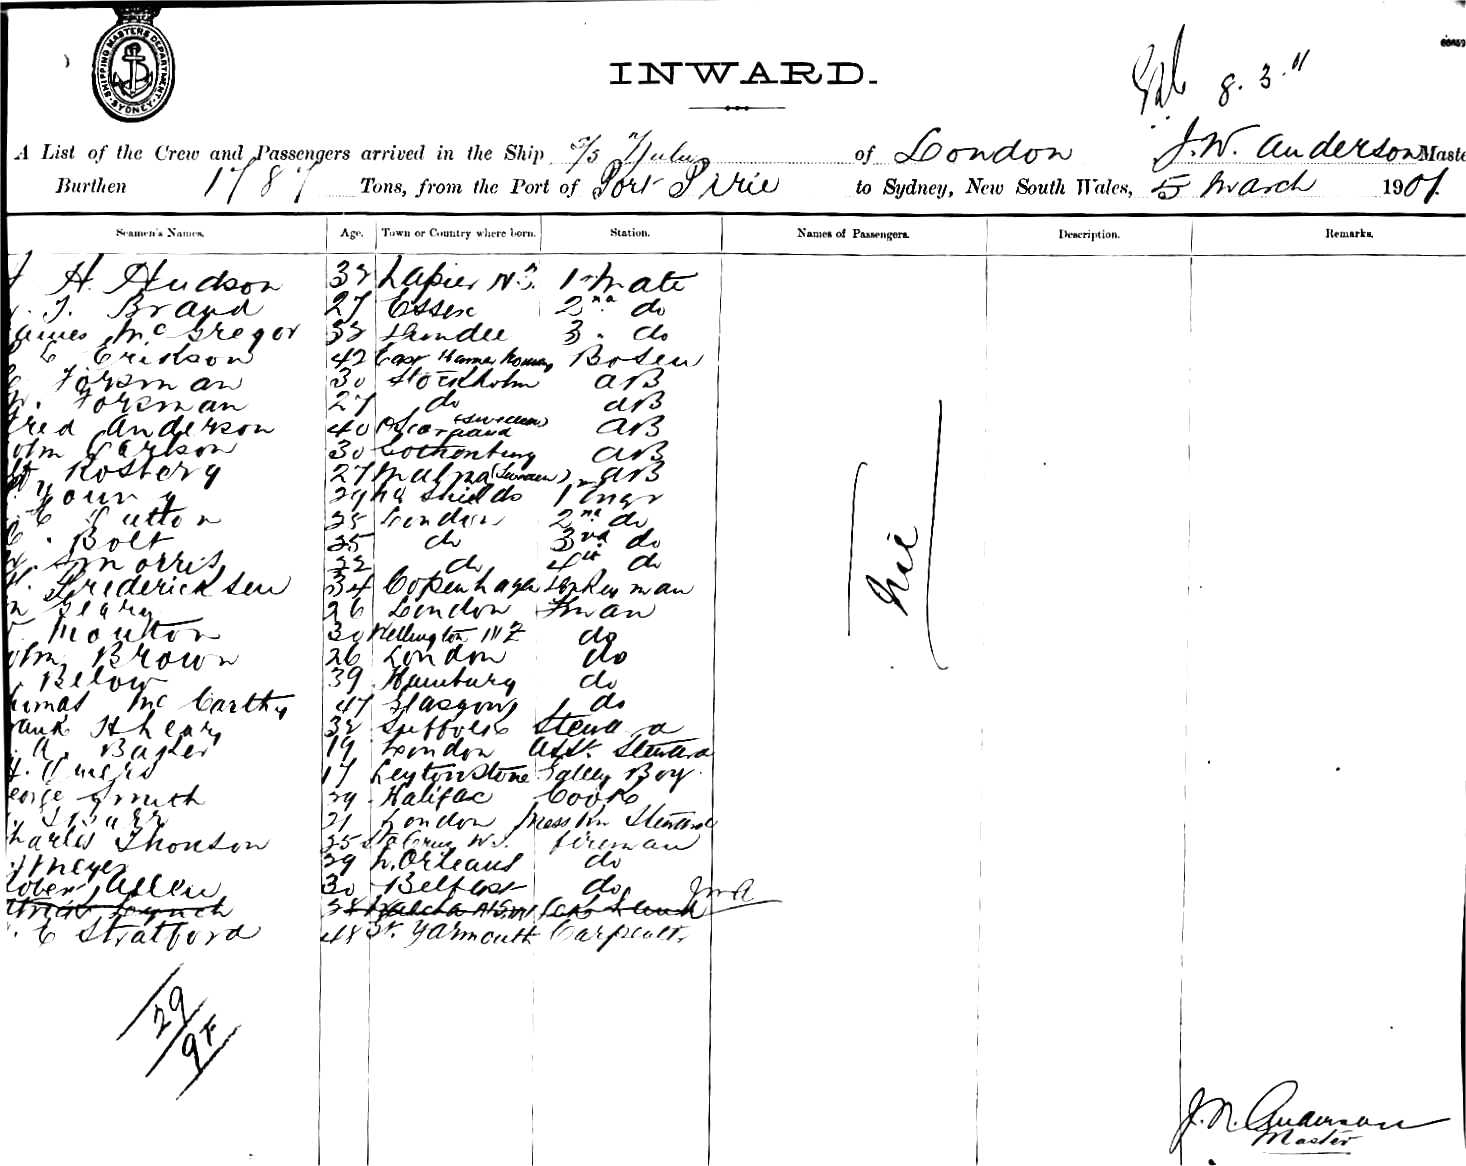 SHIPPING MASTERS DEPARTMENT
SYDNEY
INWARD.
8. 3. "
A List of the Crew and Passengers arrived in the Ship S/S Hulu of London J. W. Anderson Maste
Burthen 1787 Tons, from the Port of Port Pirie to Sydney, New South Wales, 5 March 1901.
Seamen's Names. Age. Town or Country where born. Station. Names of Passengers. Description. Remarks.
H. Hudson 32 Napier N.Z. 1st Mate
T. Brand 27 Essex 2nd do
James McGregor 32 Dundee 3 " do
C Erickson 42 East Bosen
Forsman 30 Stockholm AB
Forsman 27 do AB
fred Anderson 40 (Sweden) AB
ohn Carlson 30 Gothenburg AB
Rosberg 27 Malmo (Sweden) AB
Young 29 No Shields 1 Engr
C Sutton 25 London 2nd do
Bolt 25 do 3rd do
Morris 22 do 4th do
Fredericksen 34 Copenhagen Donkeyman
Geary 26 London Fman
Moulton 30 Wellington NZ do
ohn Brown 26 London do
Below 39 Hamburg do
homas McCarthy 47 Glasgow do
rank Ahearn 32 Suffolk Steward
A. Baker 19 London Asst. Steward
H. 17 Leytonstone Galley Boy
eorge Smith 29 Halifax Cook
21 London Mess Rm Steward
harles Thonson 25 Sta Cruz W.I. fireman
Meyer 29 N. Orleans do
Robert Allen 30 Belfast do
atrick Lynch 38 N.S.W. JWA
C Stratford 48 Gt. Yarmouth Carpenter
Nil
29
9F
J. W. Anderson
Master